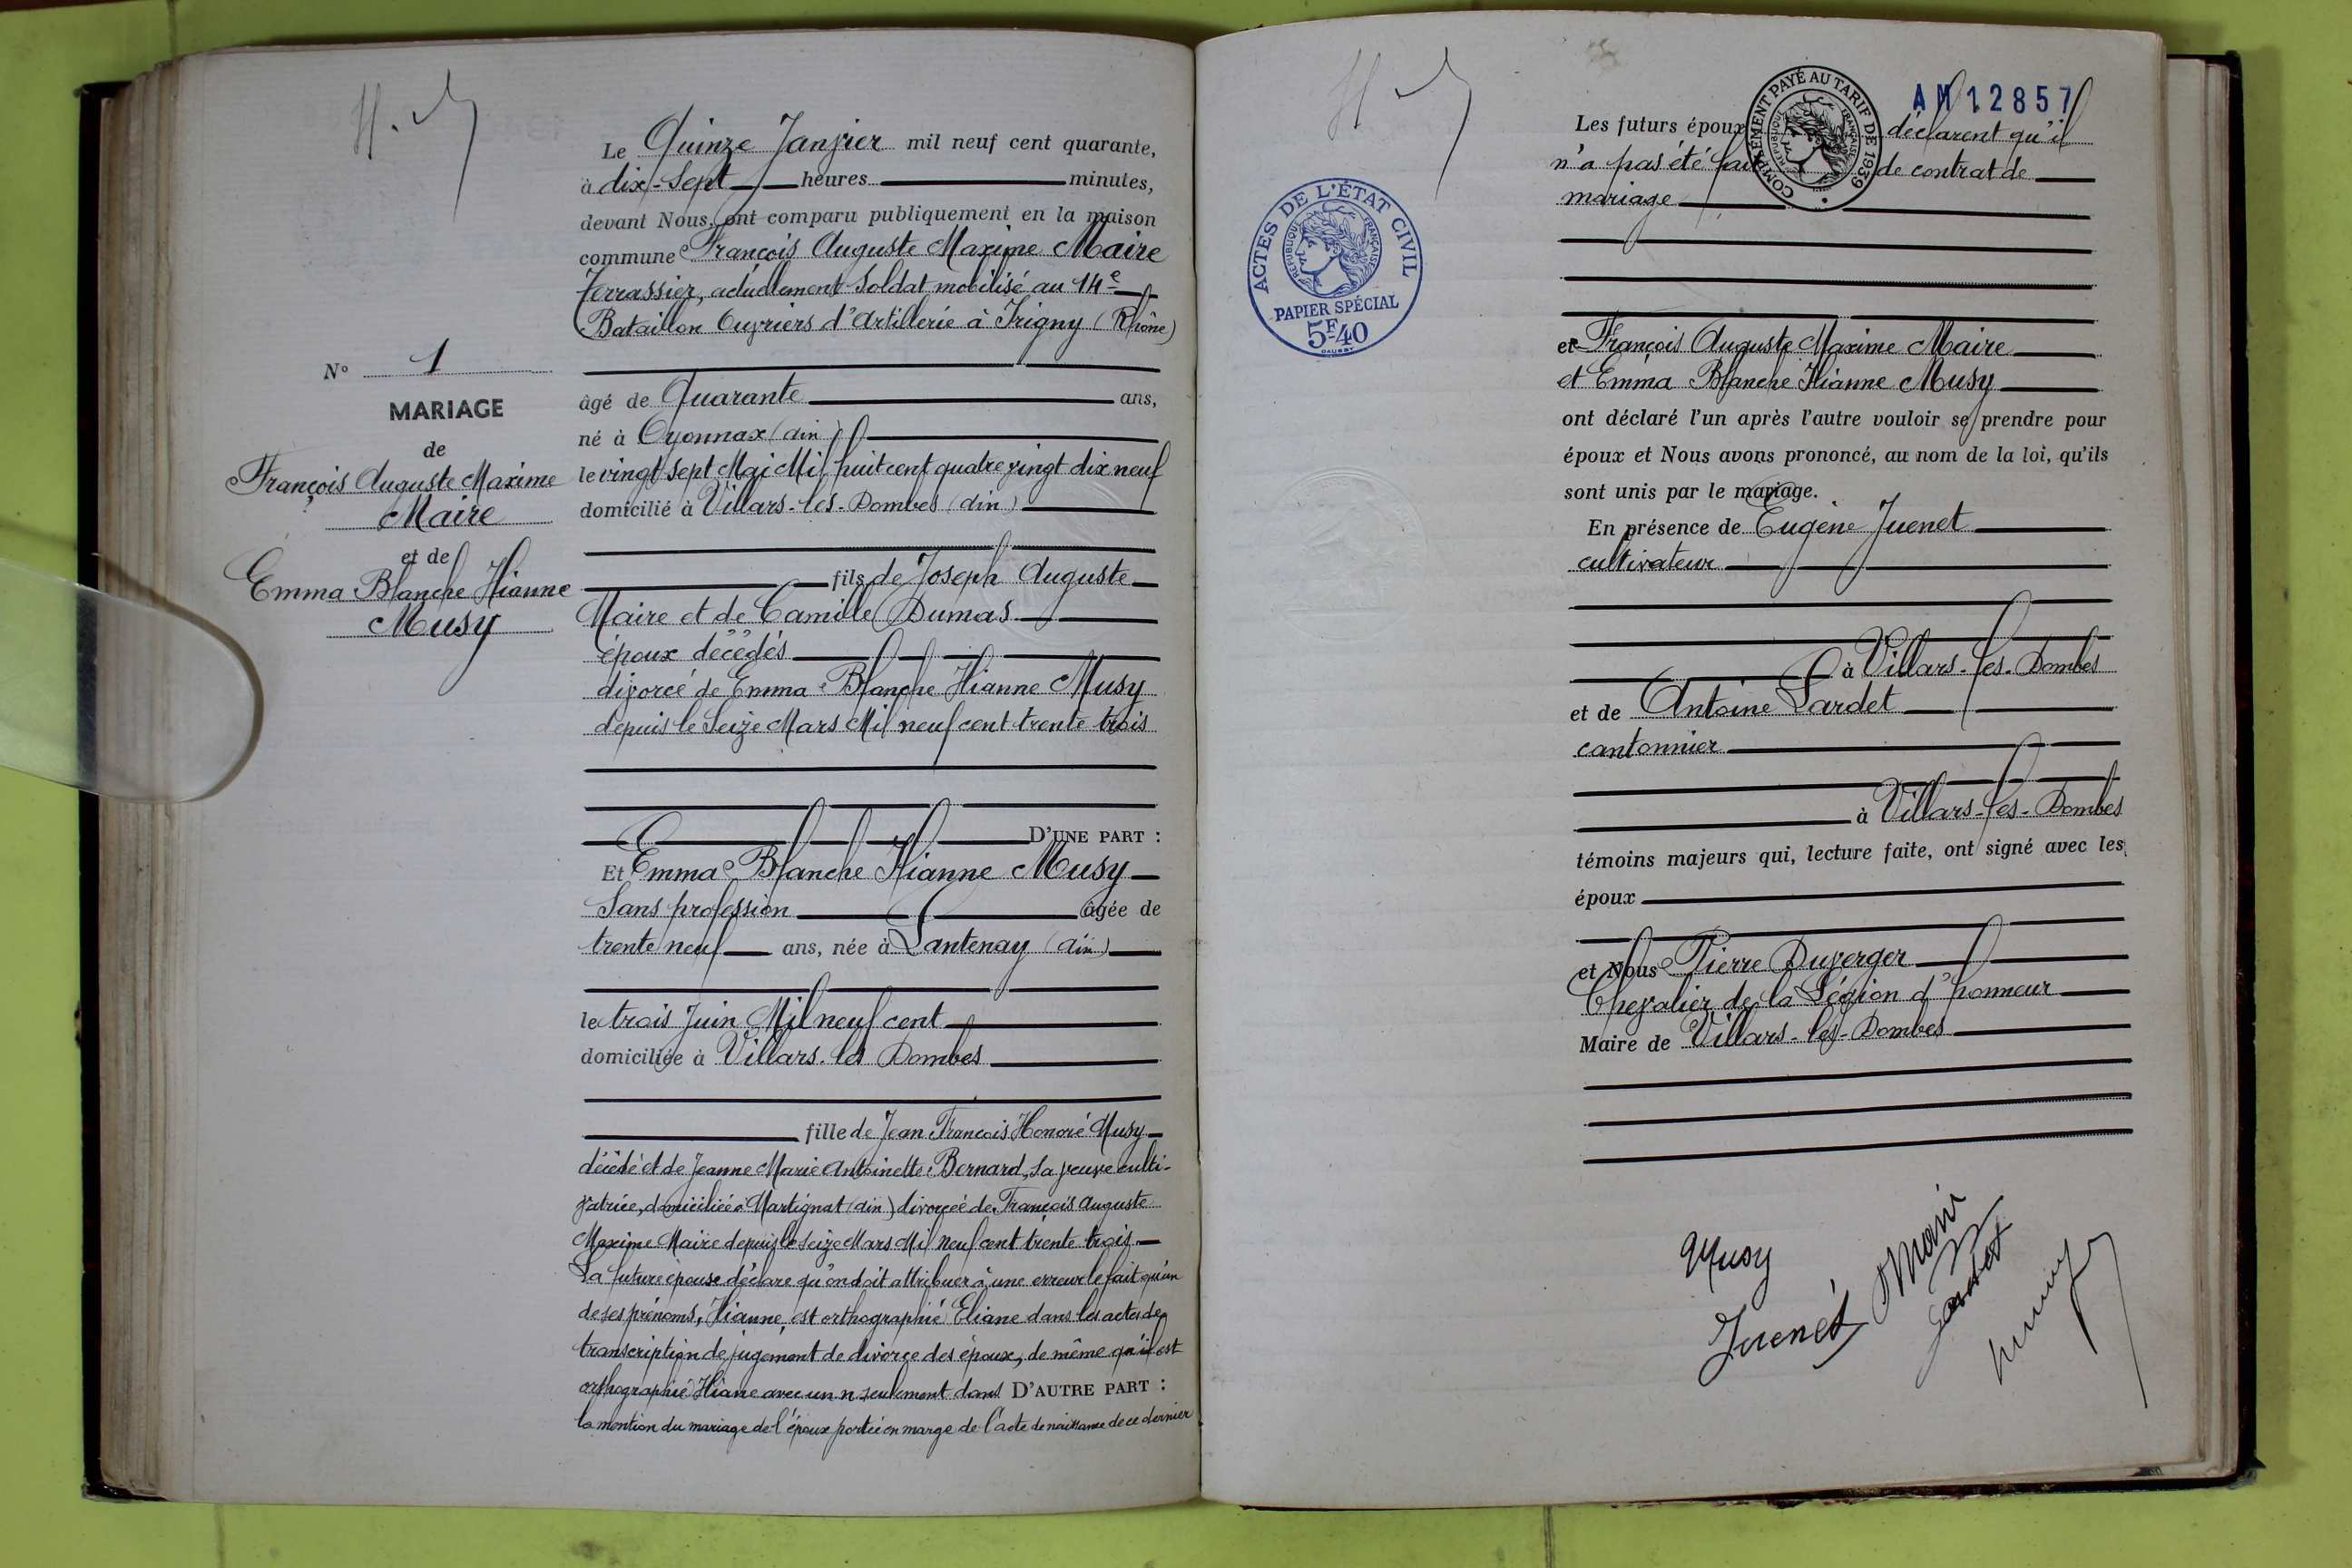 N° 1
MARIAGE
de
François Auguste Maxime
Maire
et de
Emma Blanche Hianne
Musy
Le Quinze Janvier mil neuf cent quarante,
à dix-sept heures minutes,
devant Nous, ont comparu publiquement en la maison
commune François Auguste Maxime Maire
Terrassier, actuellement Soldat mobilisé au 14e
Bataillon Ouvriers d'Artillerie à Irigny (Rhône)
âgé de Quarante ans,
né à Oyonnax (ain)
le vingt sept Mai Mil huit cent quatre vingt dix neuf
domicilié à Villars-les-Dombes (ain)
fils de Joseph Auguste
Maire et de Camille Dumas
époux décédés
divorcé de Emma Blanche Hianne Musy
depuis le Seize Mars Mil neuf cent trente trois
D'UNE PART :
Et Emma Blanche Hianne Musy
Sans profession âgée de
trente neuf ans, née à Lantenay (ain)
le trois Juin Mil neuf cent
domiciliée à Villars-les Dombes
fille de Jean François Honoré Musy
décédé et de Jeanne Marie Antoinette Bernard, sa veuve culti-
vatrice, domiciliée à Martignat (ain) divorcée de François Auguste
Maxime Maire depuis le Seize Mars Mil neuf cent trente trois
La future épouse déclare qu'on doit attribuer à une erreur le fait qu'un
de ses prénoms, Hianne, est orthographié Eliane dans les actes de
transcription de jugement de divorce des époux, de même qu'il est
orthographié Hiane avec un n seulement dans D'AUTRE PART :
la mention du mariage de l'époux portée en marge de l'acte de naissance de ce dernier
ACTES DE L'ÉTAT CIVIL
RÉPUBLIQUE FRANÇAISE
PAPIER SPÉCIAL
5F40
COMPLÉMENT PAYÉ AU TARIF DE 1939
RÉPUBLIQUE FRANÇAISE
AM 12857
Les futurs époux déclarent qu'il
n'a pas été fait de contrat de
mariage
et François Auguste Maxime Maire
et Emma Blanche Hianne Musy
ont déclaré l'un après l'autre vouloir se prendre pour
époux et Nous avons prononcé, au nom de la loi, qu'ils
sont unis par le mariage.
En présence de Eugène Juenet
cultivateur
à Villars-les-Dombes
et de Antoine Lardet
cantonnier
à Villars-les-Dombes
témoins majeurs qui, lecture faite, ont signé avec les
époux
et Nous Pierre Duverger
Chevalier de la Légion d'honneur
Maire de Villars-les-Dombes
Musy
Maire
Juenet